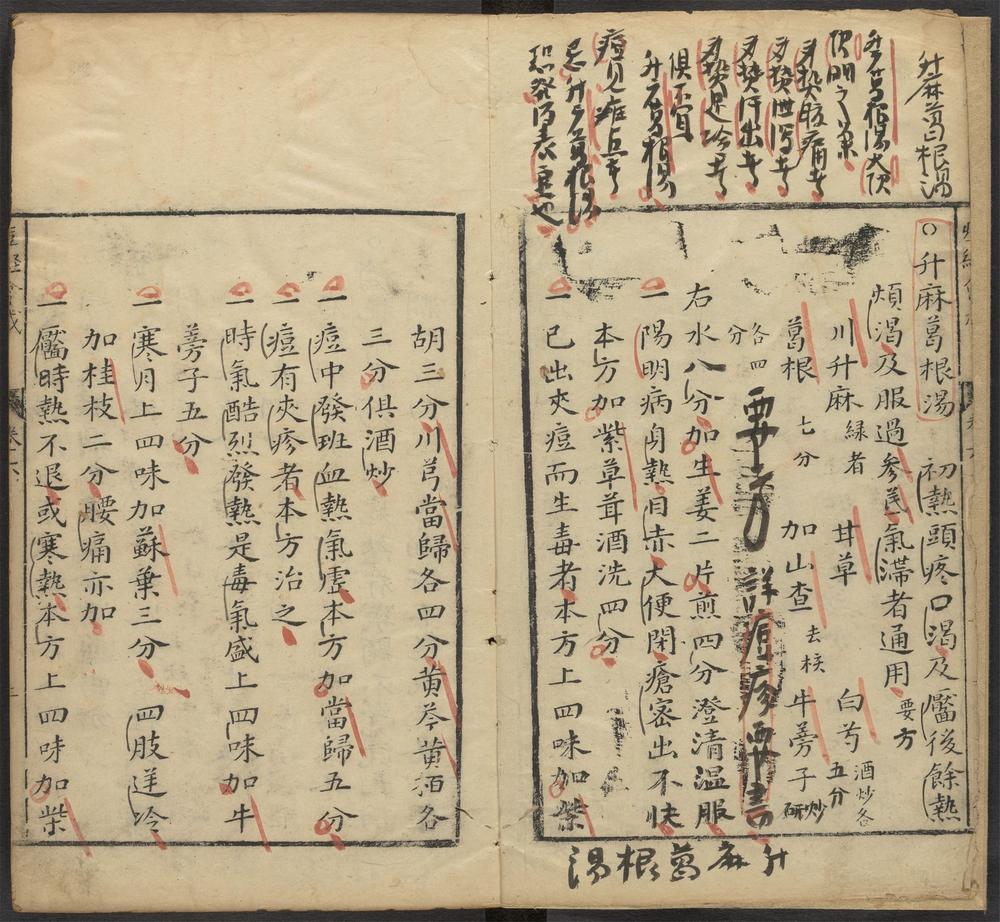 升麻葛根湯
升麻葛根湯大
身熱腹痛者
身熱泄瀉者
身熱汗出者
身熱足冷者
俱不宜
升麻葛根湯
痘見班点者
忌升麻葛根湯
恐發得表虛也
○升麻葛根湯 初熱頭疼口渴及靨後餘熱
煩渴及服過參芪氣滯者通用 要方
川升麻 緑者 甘草 白芍 酒炒各五分
葛根 七分 加山查 去核 牛蒡子 炒研
各四分
要方 詳痘疹
右水八分加生姜二片煎四分澄清温服
一陽明病身熱目赤大便閉瘡密出不快
本方加紫草茸酒洗四分
一已出夾痘而生毒者本方上四味加柴
升麻葛根湯
胡三分川芎當歸各四分黄芩黄栢各
三分俱酒炒
一痘中發班血熱氣虛本方加當歸五分
一痘有夾疹者本方治之
一時氣酷烈發熱是毒氣盛上四味加牛
蒡子五分
一寒月上四味加蘇葉三分 四肢逆冷
加桂枝二分腰痛亦加
一靨時熱不退或寒熱本方上四味加柴